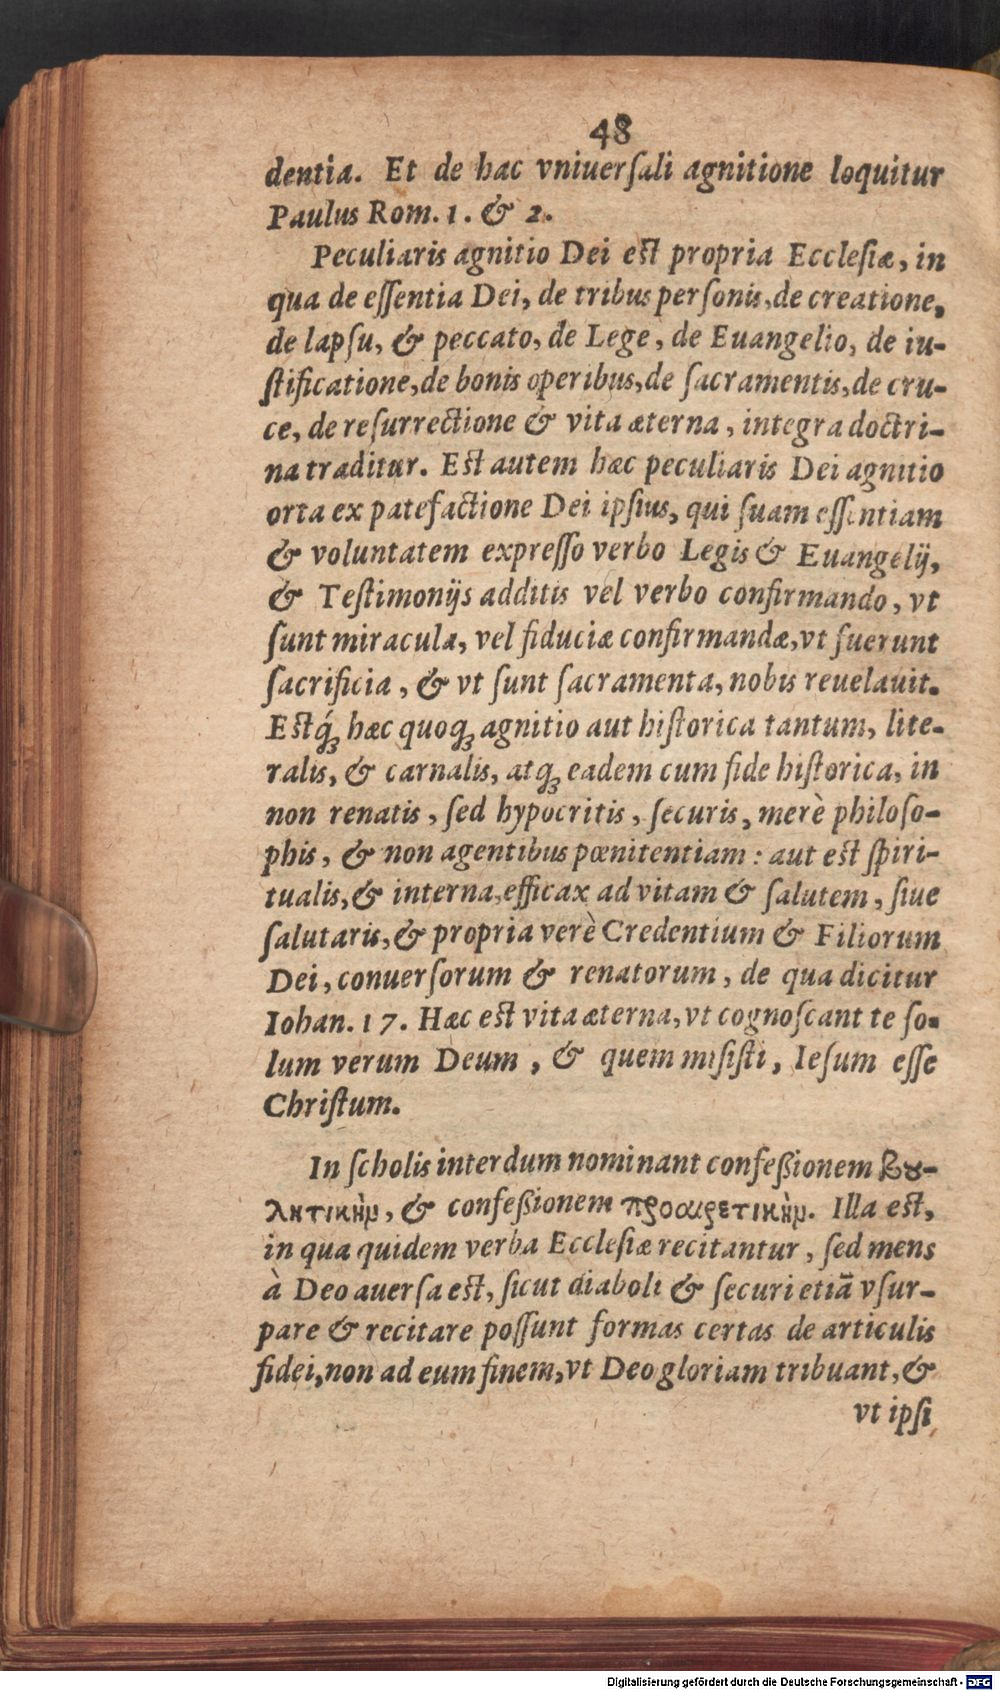 48
dentia. Et de hac vniuerſali agnitione loquitur
Paulus Rom. 1. & 2.
Peculiaris agnitio Dei est propria Eccleſiæ, in
qua de eſſentia Dei, de tribus perſonis, de creatione,
de lapſu, & peccato, de Lege, de Euangelio, de iu-
ſtificatione, de bonis operibus, de ſacramentis, de cru-
ce, de reſurrectione & vita æterna, integra doctri-
na traditur. Est autem hæc peculiaris Dei agnitio
orta ex patefactione Dei ipſius, qui ſuam eſſentiam
& voluntatem expreſſo verbo Legis & Euangelij,
& Teſtimonijs additis vel verbo confirmando, vt
ſunt miracula, vel fiduciæ confirmandæ, vt fuerunt
ſacrificia, & vt ſunt ſacramenta, nobis reuelauit.
Estq́; hæc quoq; agnitio aut hiſtorica tantum, lite-
ralis, & carnalis, atq; eadem cum fide hiſtorica, in
non renatis, ſed hypocritis, ſecuris, merè philoſo-
phis, & non agentibus pœnitentiam: aut est ſpiri-
tualis, & interna, efficax ad vitam & ſalutem, ſiue
ſalutaris, & propria verè Credentium & Filiorum
Dei, conuerſorum & renatorum, de qua dicitur
Iohan. 17. Hæc est vita æterna, vt cognoſcant te ſo-
lum verum Deum, & quem miſiſti, Ieſum eſſe
Chriſtum.
In ſcholis interdum nominant confeßionem βȣ-
λητικὴν, & confeßionem προαιρετικὴν. Illa est,
in qua quidem verba Eccleſiæ recitantur, ſed mens
à Deo auerſa est, ſicut diaboli & ſecuri etiā vſur-
pare & recitare poſſunt formas certas de articulis
fidei, non ad eum finem, vt Deo gloriam tribuant, &
vt ipſi
Digitalisierung gefördert durch die Deutsche Forschungsgemeinschaft - DFG